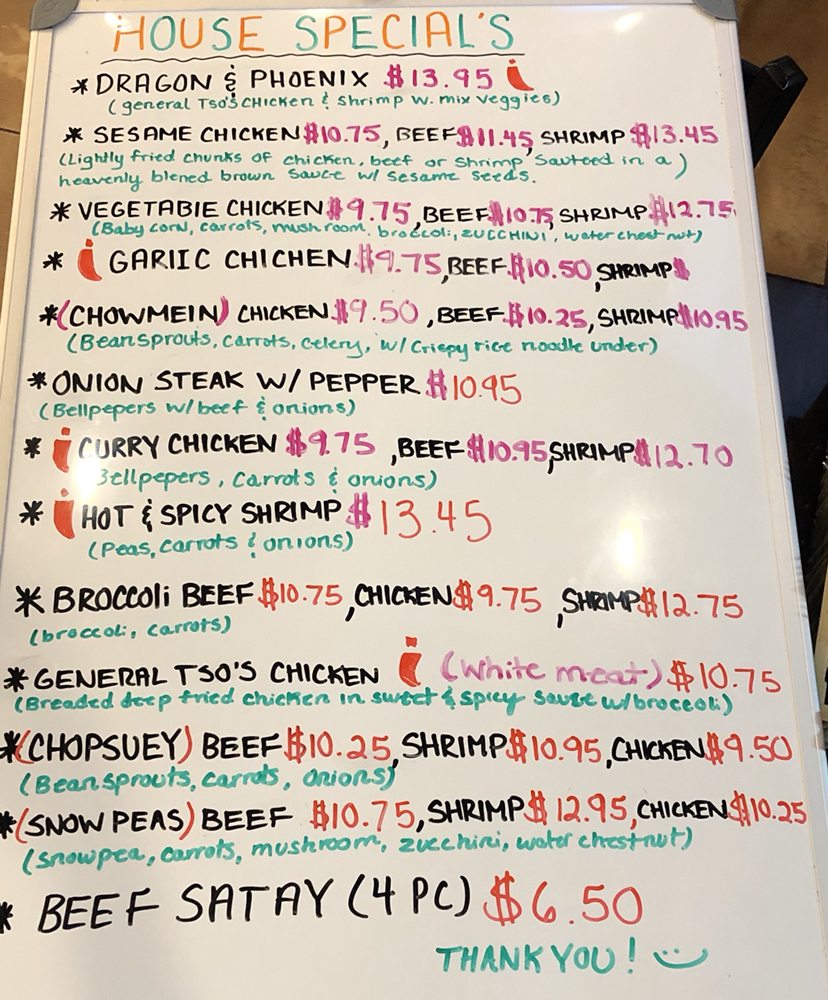 HOUSE SPECIAL'S
* DRAGON & PHOENIX $13.95
(general TSO'S CHICKEN & Shrimp w. mix veggies)
* SESAME CHICKEN $10.75, BEEF $11.45, SHRIMP $13.45
(Lightly fried chunks of chicken, beef or Shrimp Sauteed in a)
heavenly blened brown Sauce w/ Sesame Seeds.
* VEGETABIE CHICKEN $9.75, BEEF $10.75, SHRIMP $12.75
(Baby corn, carrots, mushroom, broccoli, ZUCCHINI, water chestnut)
* GARIIC CHICHEN $9.75, BEEF $10.50, SHRIMP $
* (CHOWMEIN) CHICKEN $9.50, BEEF $10.25, SHRIMP $10.95
(Beansprouts, carrots, Celery, w/ Crispy rice noodle under)
* ONION STEAK W/ PEPPER $10.95
(Bellpepers w/ beef & onions)
* CURRY CHICKEN $9.75, BEEF $10.95, SHRIMP $12.70
Bellpepers, Carrots & onions)
* HOT & SPICY SHRIMP $13.45
(Peas, carrots & onions)
* BROCCOLI BEEF $10.75, CHICKEN $9.75, SHRIMP $12.75
(broccoli, carrots)
* GENERAL TSO'S CHICKEN (White meat) $10.75
(Breaded deep fried chicken in sweet & spicy sauce w/broccoli)
* (CHOPSUEY) BEEF $10.25, SHRIMP $10.95, CHICKEN $9.50
(Beansprouts, carrots, onions)
* (SNOW PEAS) BEEF $10.75, SHRIMP $12.95, CHICKEN $10.25
(Snowpea, carrots, mushroom, zucchini, water chestnut)
* BEEF SATAY (4 PC) $6.50
THANK YOU!